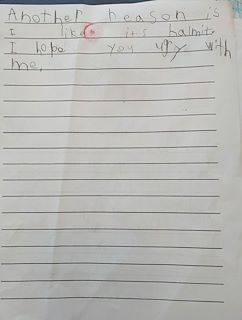 Another reason is
I like its halmit.
I hope you ugy with
me.